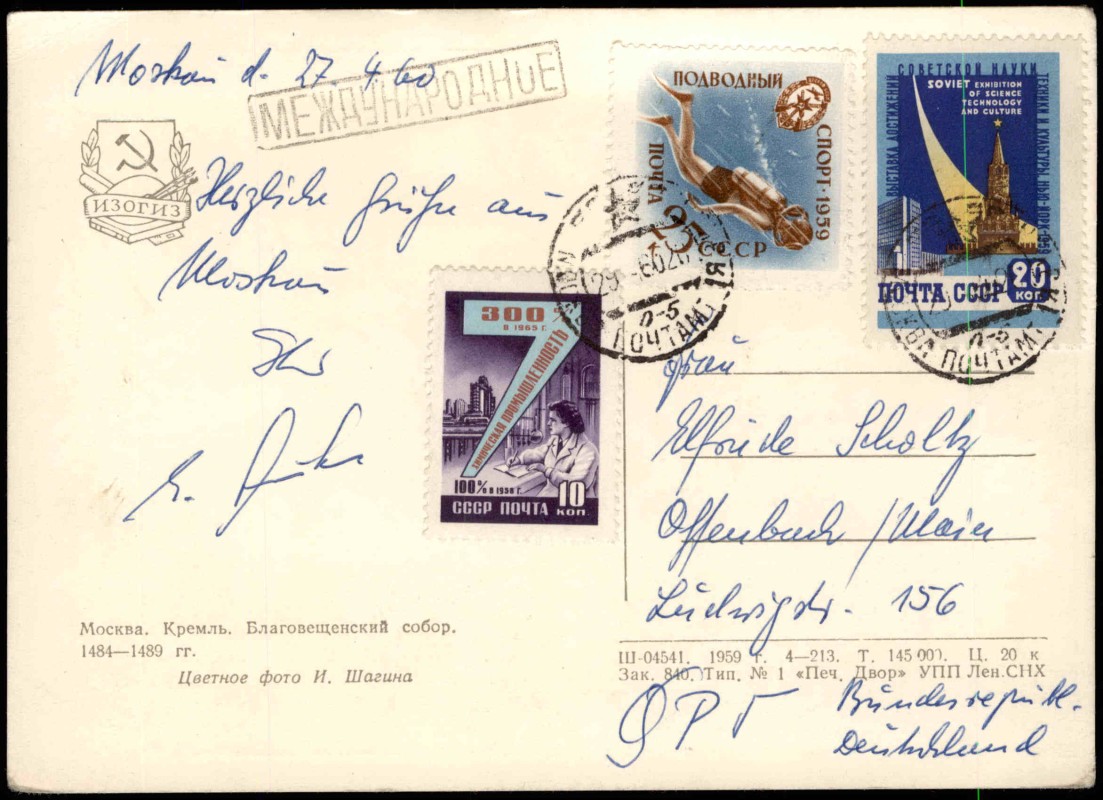 Moskau d. 27 4 60
МЕЖДУНАРОДНОЕ
ИЗОГИЗ
Herzliche Grüße aus
Moskau
Ihr
Москва. Кремль. Благовещенский собор.
1484—1489 гг.
Цветное фото И. Шагина
300%
В 1965 Г.
ХИМИЧЕСКАЯ ПРОМЫШЛЕННОСТЬ
100% В 1958 Г.
10
СССР ПОЧТА КОП
ПОДВОДНЫЙ
СПОРТ·1959
ПОЧТА
25
СССР
МОСКВА ПОЧТАМТ
0-5
ВЫСТАВКА ДОСТИЖЕНИЙ
СОВЕТСКОЙ НАУКИ
ТЕХНИКИ И КУЛЬТУРЫ
SOVIET EXHIBITION
OF SCIENCE
TECHNOLOGY
AND CULTURE
20
ПОЧТА СССР КОП
МОСКВА ПОЧТАМТ
0-5
Frau
Elfriede Scholtz
Offenbach/Main
Ludwigstr. 156
Ш-04541. 1959 г. 4—213. Т. 145 000. Ц. 20 к
Зак. 840. Тип. № 1 «Печ. Двор» УПП Лен.СНХ
ФРГ
Bundesrepubl.
Deutschland